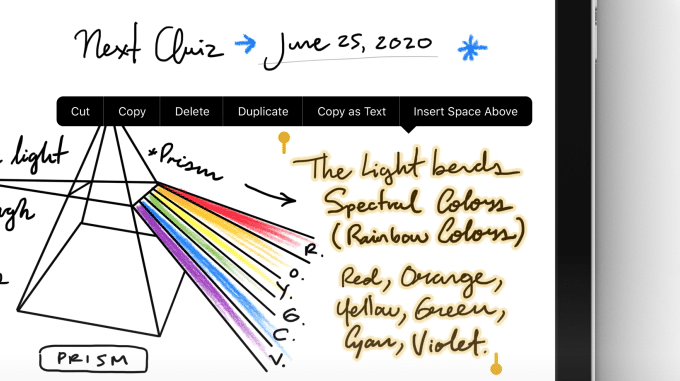 Next Quiz → June 25, 2020 *
Cut Copy Delete Duplicate Copy as Text Insert Space Above
light
*Prism
The Light bends
Spectral Colors
(Rainbow Colors)
R.
O.
Y.
G.
C.
V.
Red, Orange,
Yellow, Green,
Cyan, Violet.
PRISM